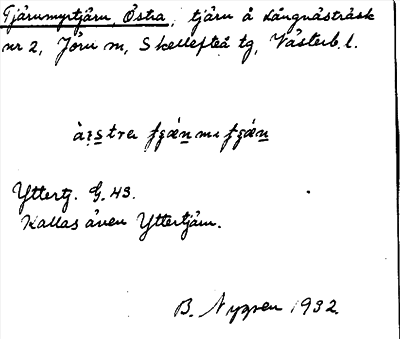 Tjärumyrtjärn, Östra, tjärn å Långnästräsk
nr 2, Jörn sn, Skellefteå tg, Västerb. l.
Yttertj. G. 43.
Kallas även Yttertjärn.
B. Nygren 1932.